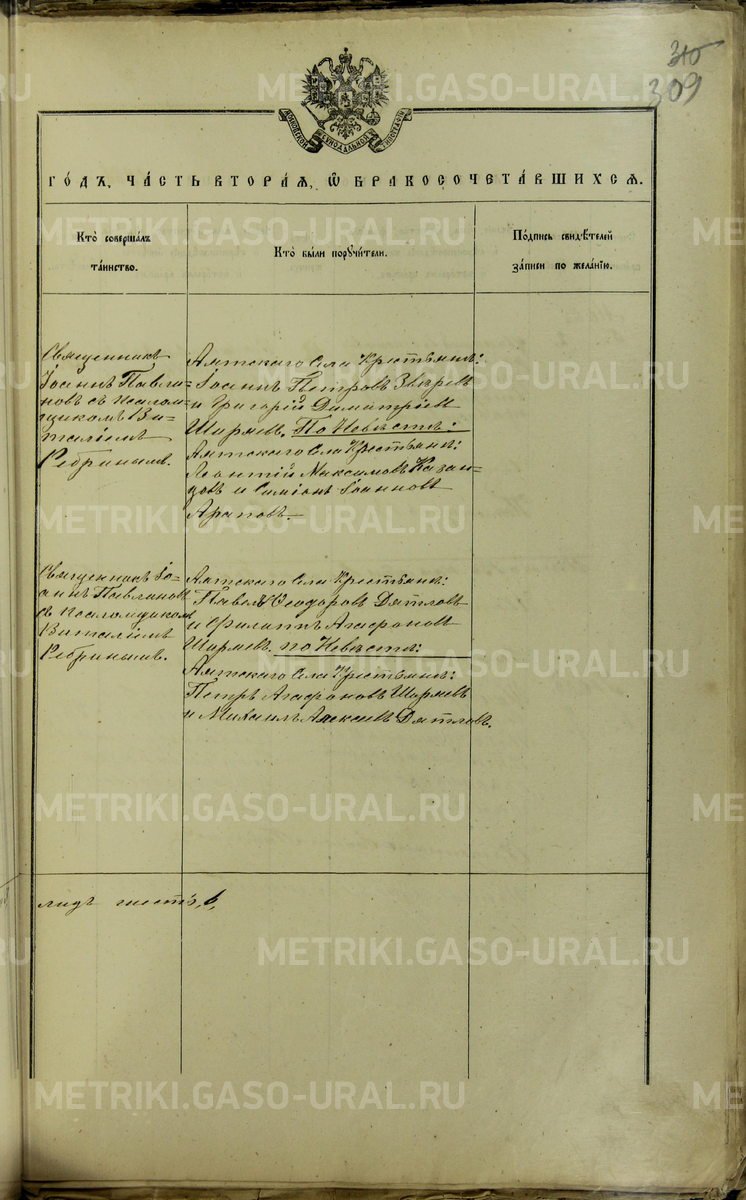 310
309
МОСКОВСКОЙ СѴНОДАЛЬНОЙ ТИПОГРАФІИ
ГО́ДЪ, ЧА́СТЬ ВТОРА́Я, Ѡ҆ БРАКОСОЧЕТА́ВШИХСЯ.
Кто̀ соверша́лъ
та́инство.
Кто̀ бы́ли порꙋчи́тели.
По́дпись свидѣ́телей
за́писи по жела́нїю.
Священникъ
Іоаннъ Павли-
новъ съ Псалом-
щикомъ Ви-
таліемъ
Ребринымъ.
Аятскаго Села Крестьяне:
Іоаннъ Петровъ Звѣревъ
и Григорій Димитріевъ
Ширяевъ. По Невѣстѣ:
Аятскаго Села Крестьяне:
Леонтій Максимовъ Казан-
цовъ и Симеонъ Іоанновъ
Араповъ.
Священникъ Іо-
аннъ Павлиновъ
съ Псаломщикомъ
Виталіемъ
Ребринымъ.
Аятскаго Села Крестьяне:
Павелъ Ѳеодоровъ Дятловъ
и Филиппъ Агафоновъ
Ширяевъ. по Невѣстѣ:
Аятскаго Села Крестьяне:
Петръ Агафоновъ Ширяевъ
и Михаилъ Алексіевъ Дятловъ.
лицъ шесть, 6,
METRIKI.GASO-URAL.RU